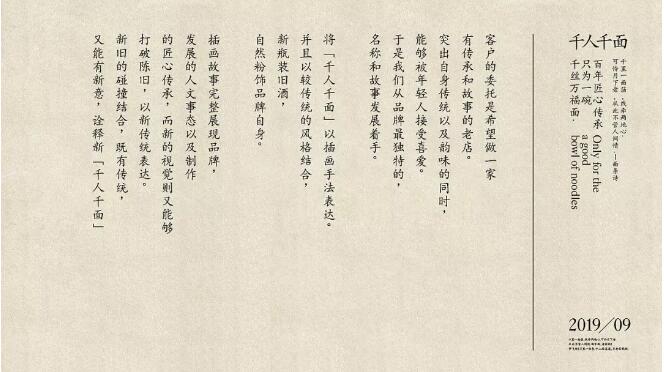 千人千面
百年匠心传承
只为一碗
千丝万福面.
Only for the
a good
bowl of noodles
客户的委托是希望做一家
有传承和故事的老店。
突出自身传统以及韵味的同时，
能够被年轻人接受喜爱。
于是我们从品牌最独特的，
名称和故事发展着手。
将「千人千面」以插画手法表达。
并且以较传统的风格结合，
新瓶装旧酒，
自然粉饰品牌自身。
插画故事完整展现品牌，
发展的人文事态以及制作
的匠心传承，而新的视觉则又能够
打破陈旧，以新传统表达。
新旧的碰撞结合，既有传统，
又能有新意，诠释新「千人千面」
2019/09